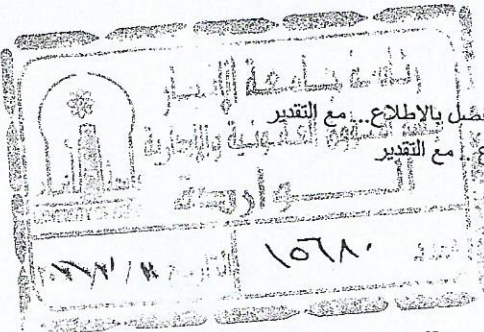 رئاسة جامعة الانبار
فضل بالاطلاع... مع التقدير
قسم الشؤون القانونية والإدارية
ع .. مع التقدير
الــواردة
العدد ١٥٦٨٠
التاريخ